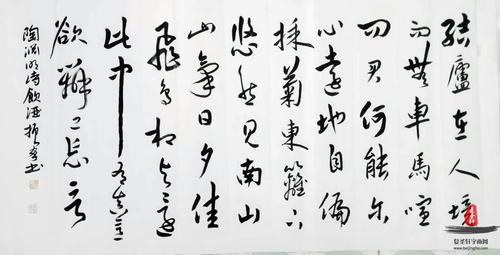 結廬在人境
而無車馬喧
問君何能尔
心遠地自偏
採菊東籬下
悠然見南山
山氣日夕佳
飛鳥相与還
此中有真意
欲辯已忘言
陶淵明詩飲酒 書
字画网